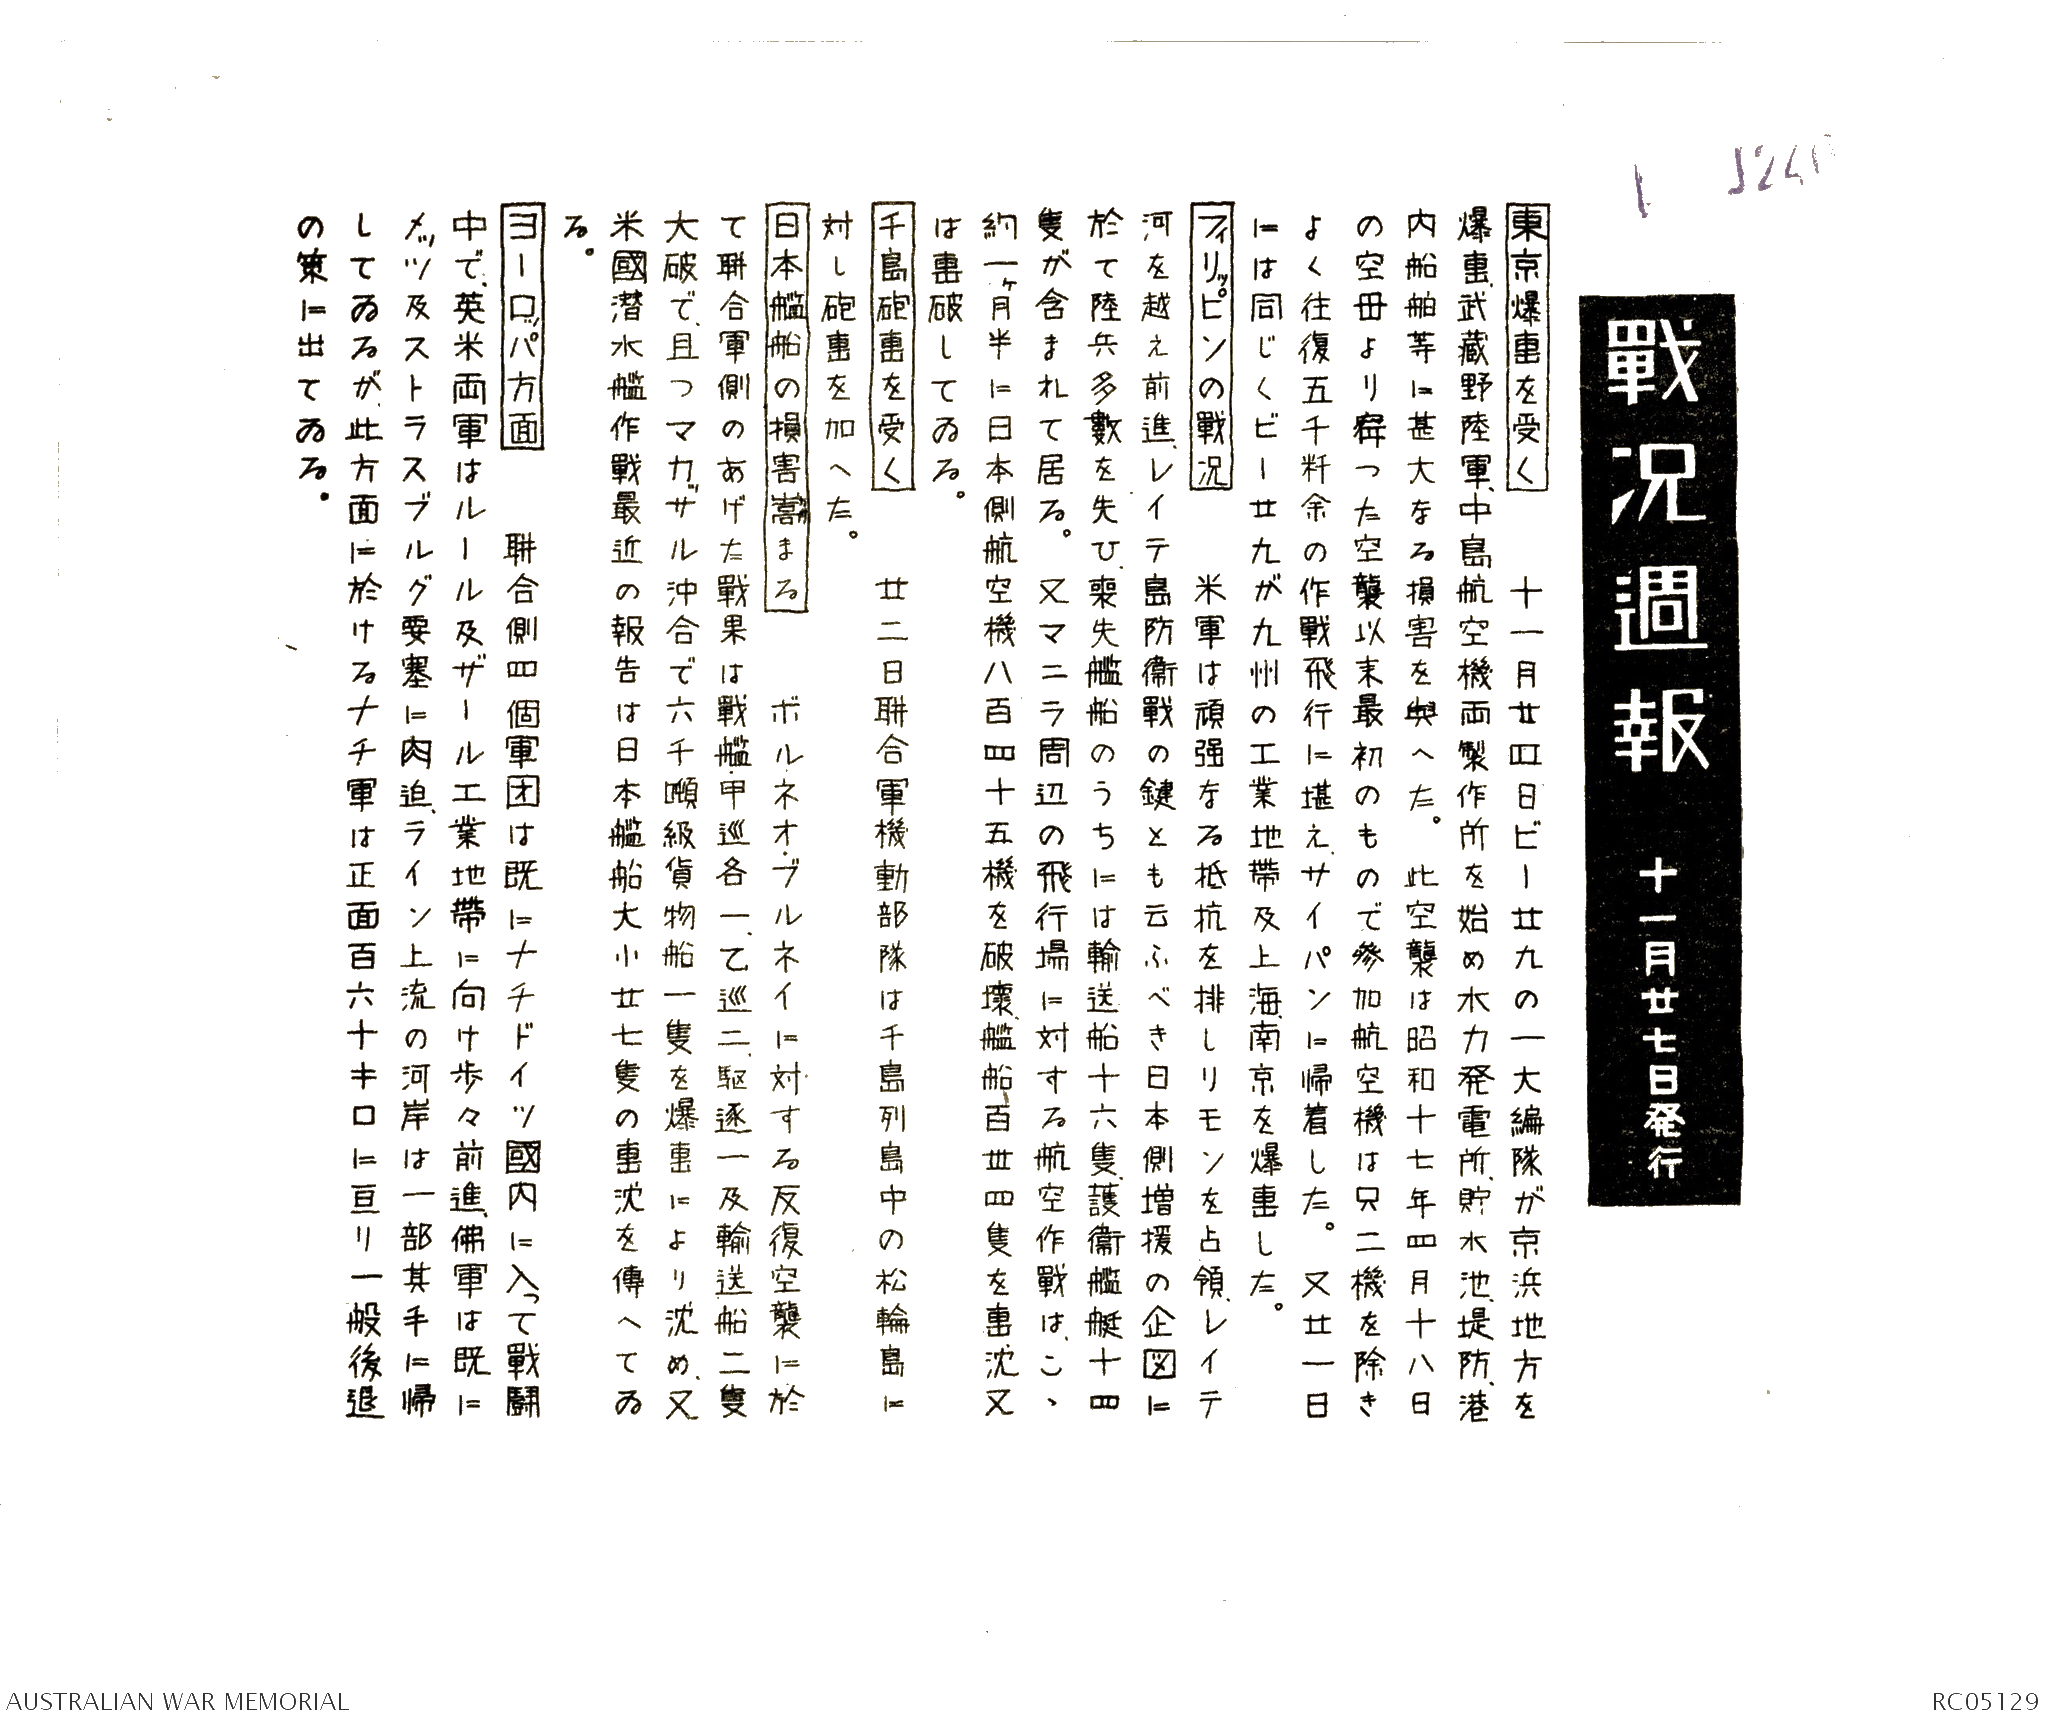 J240
1
戰況週報 十一月廿七日発行
東京爆撃を受く 十一月廿四日ビー廿九の一大編隊が京浜地方を
爆撃、武蔵野陸軍、中島航空機両製作所を始め水力発電所、貯水池、堤防、港
内船舶等に甚大なる損害を與へた。 此空襲は昭和十七年四月十八日
の空母より襲った空襲以来最初のもので参加航空機は只二機を除き
よく往復五千粁余の作戰飛行に堪え、サイパンに帰着した。 又廿一日
には同じくビー廿九が九州の工業地帯及上海、南京を爆撃した。
フィリッピンの戰況 米軍は頑强なる抵抗を排しリモンを占領、レイテ
河を越え前進、レイテ島防衛戰の鍵とも云ふべき日本側増援の企図に
於て陸兵多數を失ひ、喪失艦船のうちには輸送船十六隻、護衛艦艇十四
隻が含まれて居る。 又マニラ周辺の飛行場に対する航空作戰は、こゝ
約一ヶ月半に日本側航空機八百四十五機を破壊、艦船百卅四隻を撃沈又
は撃破してゐる。
千島砲撃を受く 廿二日聯合軍機動部隊は千島列島中の松輪島に
対し砲撃を加へた。
日本艦船の損害嵩まる ボルネオ・ブルネイに対する反復空襲に於
て聯合軍側のあげた戰果は戰艦・甲巡各一、乙巡二、駆逐一及輸送船二隻
大破で、且つマカッサル沖合で六千噸級貨物船一隻を爆撃により沈め、又
米國潜水艦作戰最近の報告は日本艦船大小廿七隻の撃沈を傳へてゐ
る。
ヨーロッパ方面 聯合側四個軍团は既にナチドイツ國内に入って戰鬪
中で、英米両軍はルール及ザール工業地帶に向け歩々前進、佛軍は既に
メッツ及ストラスブルグ要塞に肉迫、ライン上流の河岸は一部其手に帰
してゐるが、此方面に於けるナチ軍は正面百六十キロに亘り一般後退
の策に出てゐる.
AUSTRALIAN WAR MEMORIAL
RC05129